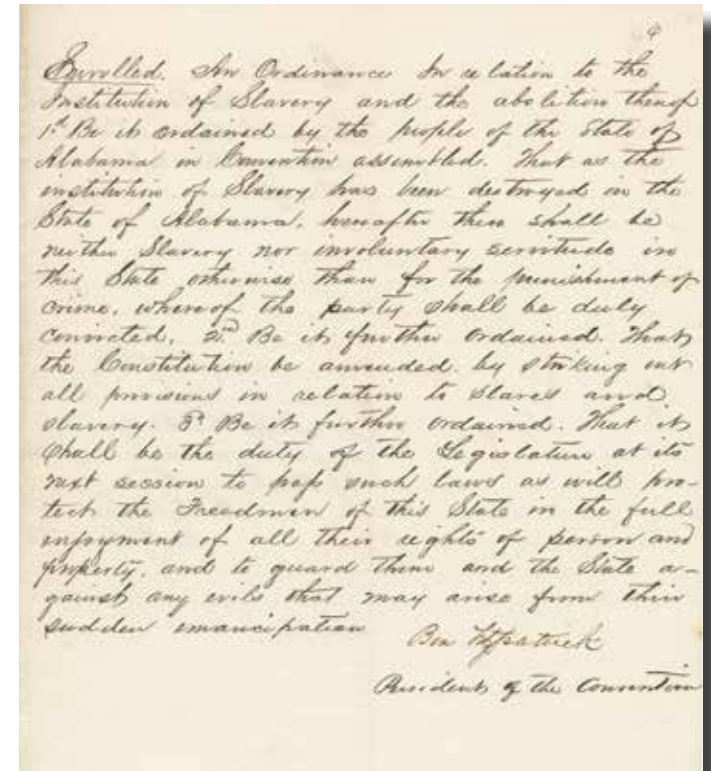 6
Enrolled. An Ordinance In relation to the
Institution of Slavery and the abolition thereof
1st Be it ordained by the people of the State of
Alabama in Convention assembled. That as the
institution of Slavery has been destroyed in the
State of Alabama, hereafter there shall be
neither Slavery nor involuntary servitude in
this State otherwise than for the punishment of
crime, whereof the party shall be duly
convicted. 2nd Be it further ordained. That
the Constitution be amended by striking out
all provisions in relation to slaves and
slavery. 3d Be it further ordained. That it
shall be the duty of the Legislature at its
next session to pass such laws as will pro-
tect the Freedmen of this State in the full
enjoyment of all their rights of person and
property, and to guard them and the State a-
gainst any evils that may arise from their
sudden emancipation
Ben Fitzpatrick
President of the Convention